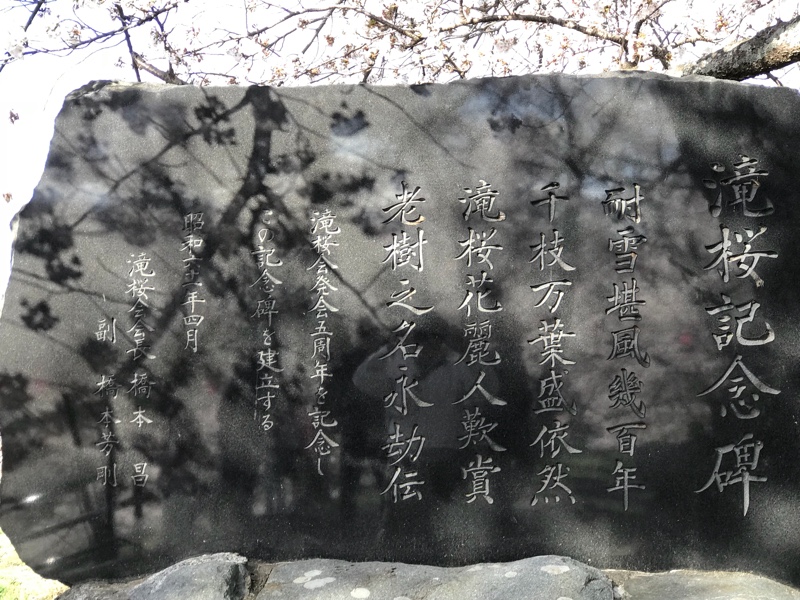 滝桜記念碑
耐雪堪風幾百年
千枝万葉盛依然
滝桜花麗人歎賞
老樹之名永劫伝
滝桜会発会五周年を記念し
この記念碑を建立する
昭和六十一年四月
滝桜会会長 橋本 昌
〃 副 橋本芳剛